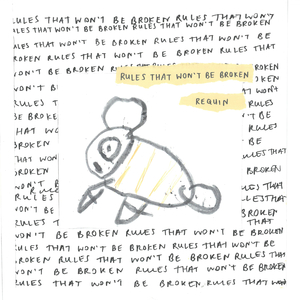 RULES THAT WON'T BE BROKEN RULES THAT WON'T
RULES THAT WON'T BE BROKEN RULES THAT WON'T
RULES THAT WON'T BE BROKEN RULES THAT
WON'T BE BROKEN RULES THAT WON'T BE
BROKEN RULES THAT WON'T BE BROKEN RULES THAT
WON'T BE BROKEN
RULES THAT WON'T BE BROKEN
REQUIN
RULES THAT WON'T
BE BROKEN
THAT WO
BROKEN
THAT WON
BROKEN
WON'T B
RULES
RULES
WON'T BE
RULES THAT
BROKEN
THAT
WON'T BE BROKEN RULES THAT WON'T BE BROKEN
RULES THAT WON'T BE BROKEN RULES THAT WON'T BE
BROKEN RULES THAT WON'T BE BROKEN RULES THA
WON'T BE BROKEN RULES THAT WON'T BE BROKEN
RULES THAT WON'T BE BROKEN RULES THAT WON